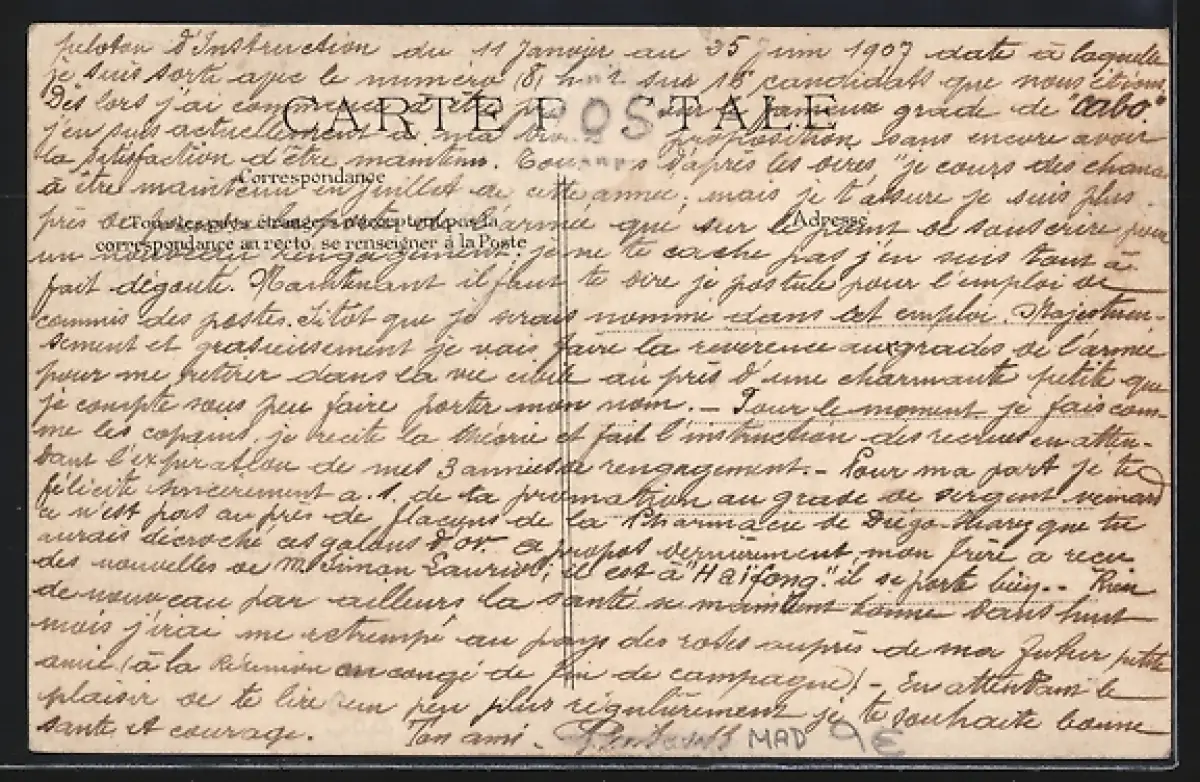 peloton d'Instruction du 11 Janvier au 25 Juin 1907 date à laquelle
je suis sorti avec le numéro (8) huit sur 18 candidats que nous étions.
Dès lors j'ai grade de "Cabo".
CARTE POSTALE
j'en suis actuellement à ma proposition sans encore avoir
la satisfaction d'être maintenu. d'après les dires "je cours des chances
Correspondance
à être maintenu en juillet de cette année; mais je t'assure je suis plus
Tous les pays étrangers n'acceptent pas la
correspondance au recto, se renseigner à la Poste
Adresse
près de l'armée que sur le point de souscrire pour
un nouveau rengagement; je ne te cache pas j'en suis tout à
fait dégouté. Maintenant il faut te dire je postule pour l'emploi de
commis des postes. Sitôt que je serais nommé dans cet emploi. Majestueu-
sement et gracieusement je vais faire la reverence aux grades de l'armée
pour me retirer dans la vie civile au près d'une charmante petite que
je compte sous peu faire porter mon nom. — Pour le moment je fais com-
me les copains, je recite la théorie et fait l'instruction des recrues en atten-
dant l'expiration de mes 3 années de rengagement. - Pour ma part je te
félicite sincèrement a. s. de ta promotion au grade de sergent veinard
ce n'est pas au près de flacons de la Pharmacie de Diégo-Suarez que tu
aurais décroché ces galons d'or. A propos dernièrement mon frère a reçu
des nouvelles de M. Simon Lauriol; il est à "Haïfong". il se porte bien. - Rien
de nouveau par ailleurs la santé se maintient bonne dans huit
mois j'irai me retrempé au pays des roses auprès de ma futur petite
amie (à la Réunion en congé de fin de campagne)! - En attendant le
plaisir de te lire un peu plus régulièrement je te souhaite bonne
santé et courage. Ton ami.
MAD 9€